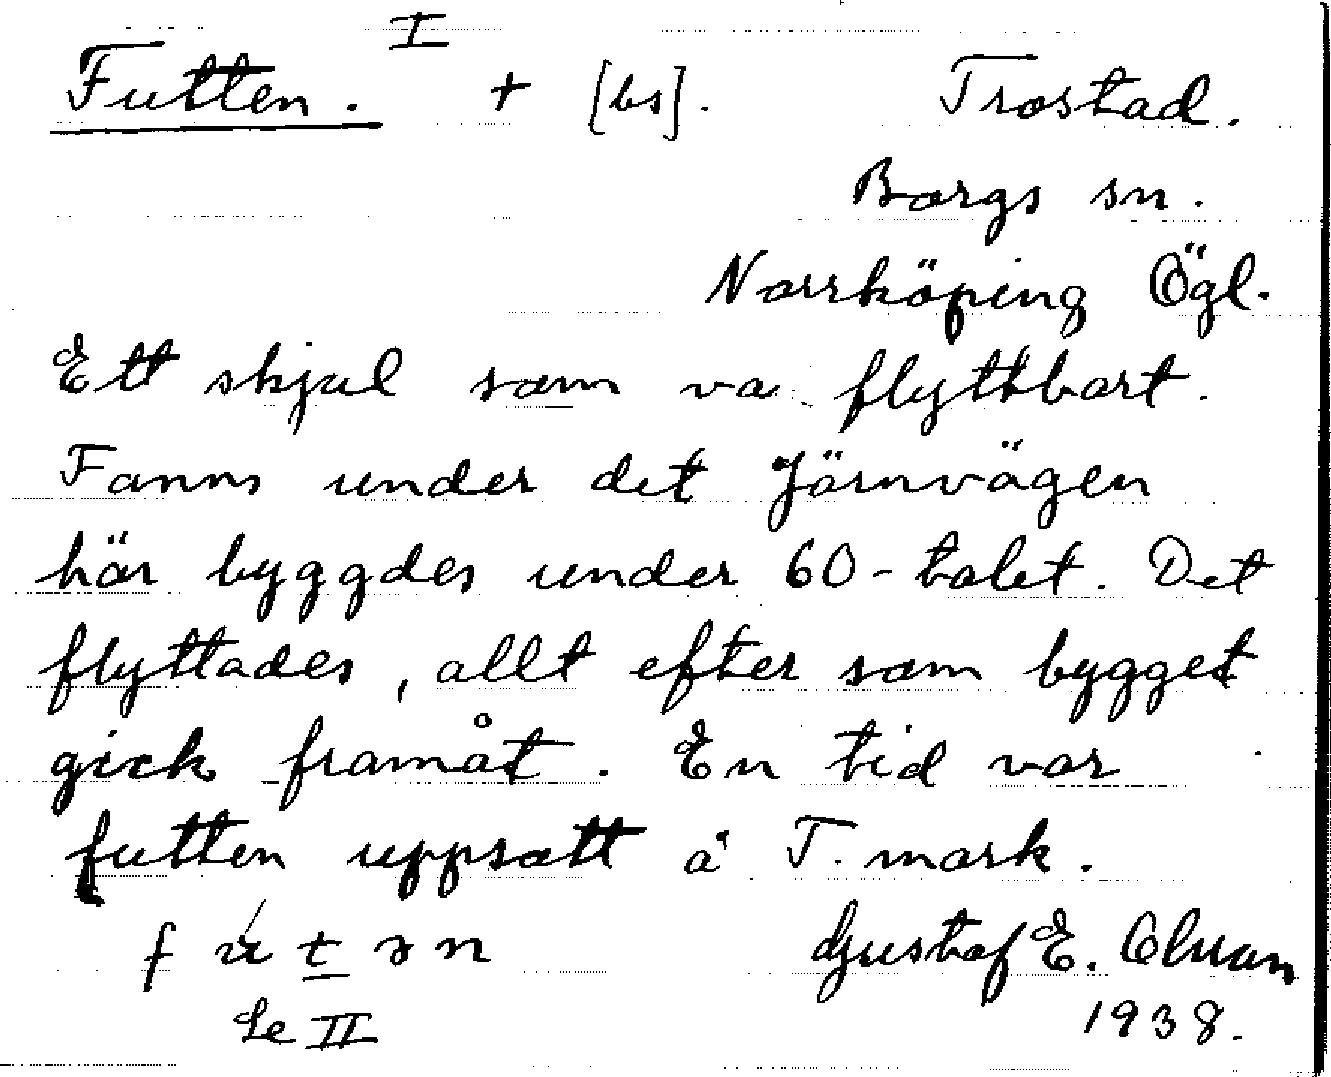 I
Futten. + [bs]. Trostad.
Borgs sn.
Norrköping Ögl.
Ett skjul som va flyttbart.
Fanns under det Järnvägen
här byggdes under 60-talet. Det
flyttades, allt efter som bygget
gick framåt. En tid var
futten uppsatt å T. mark.
f ú t ə n Gustaf E.
Se II 1938.